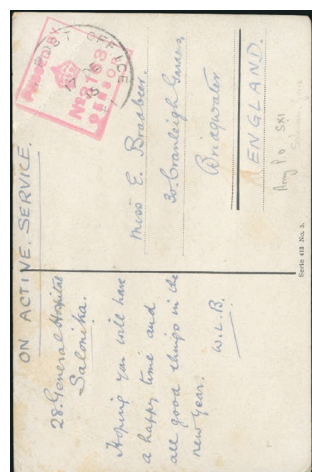 ON ACTIVE. SERVICE.
28. General Hospital
Salonika.
Hoping you will have
a happy time and
all good things in the
new year.
W.L.B.
FIELD POST OFFICE
PASSED BY
No 3163
CENSOR
Miss E. Bradbeer.
30. Cranleigh Gardens
Bridgwater
ENGLAND.
Army P.O. SX1
Serie 413 No. 2.